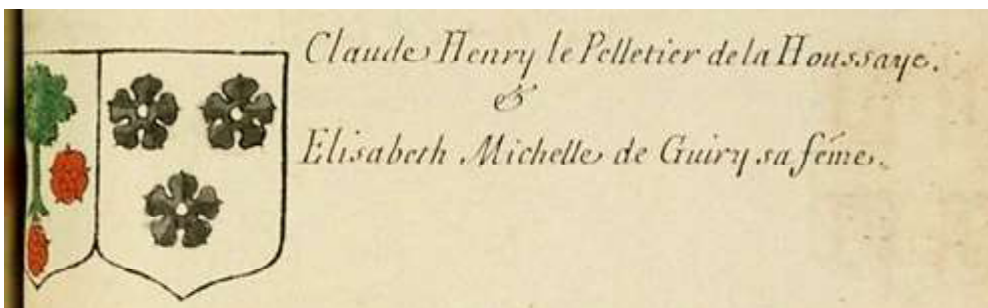 Claude Henry le Pelletier de la Houssaye.
&
Elisabeth Michelle de Guiry sa féme.